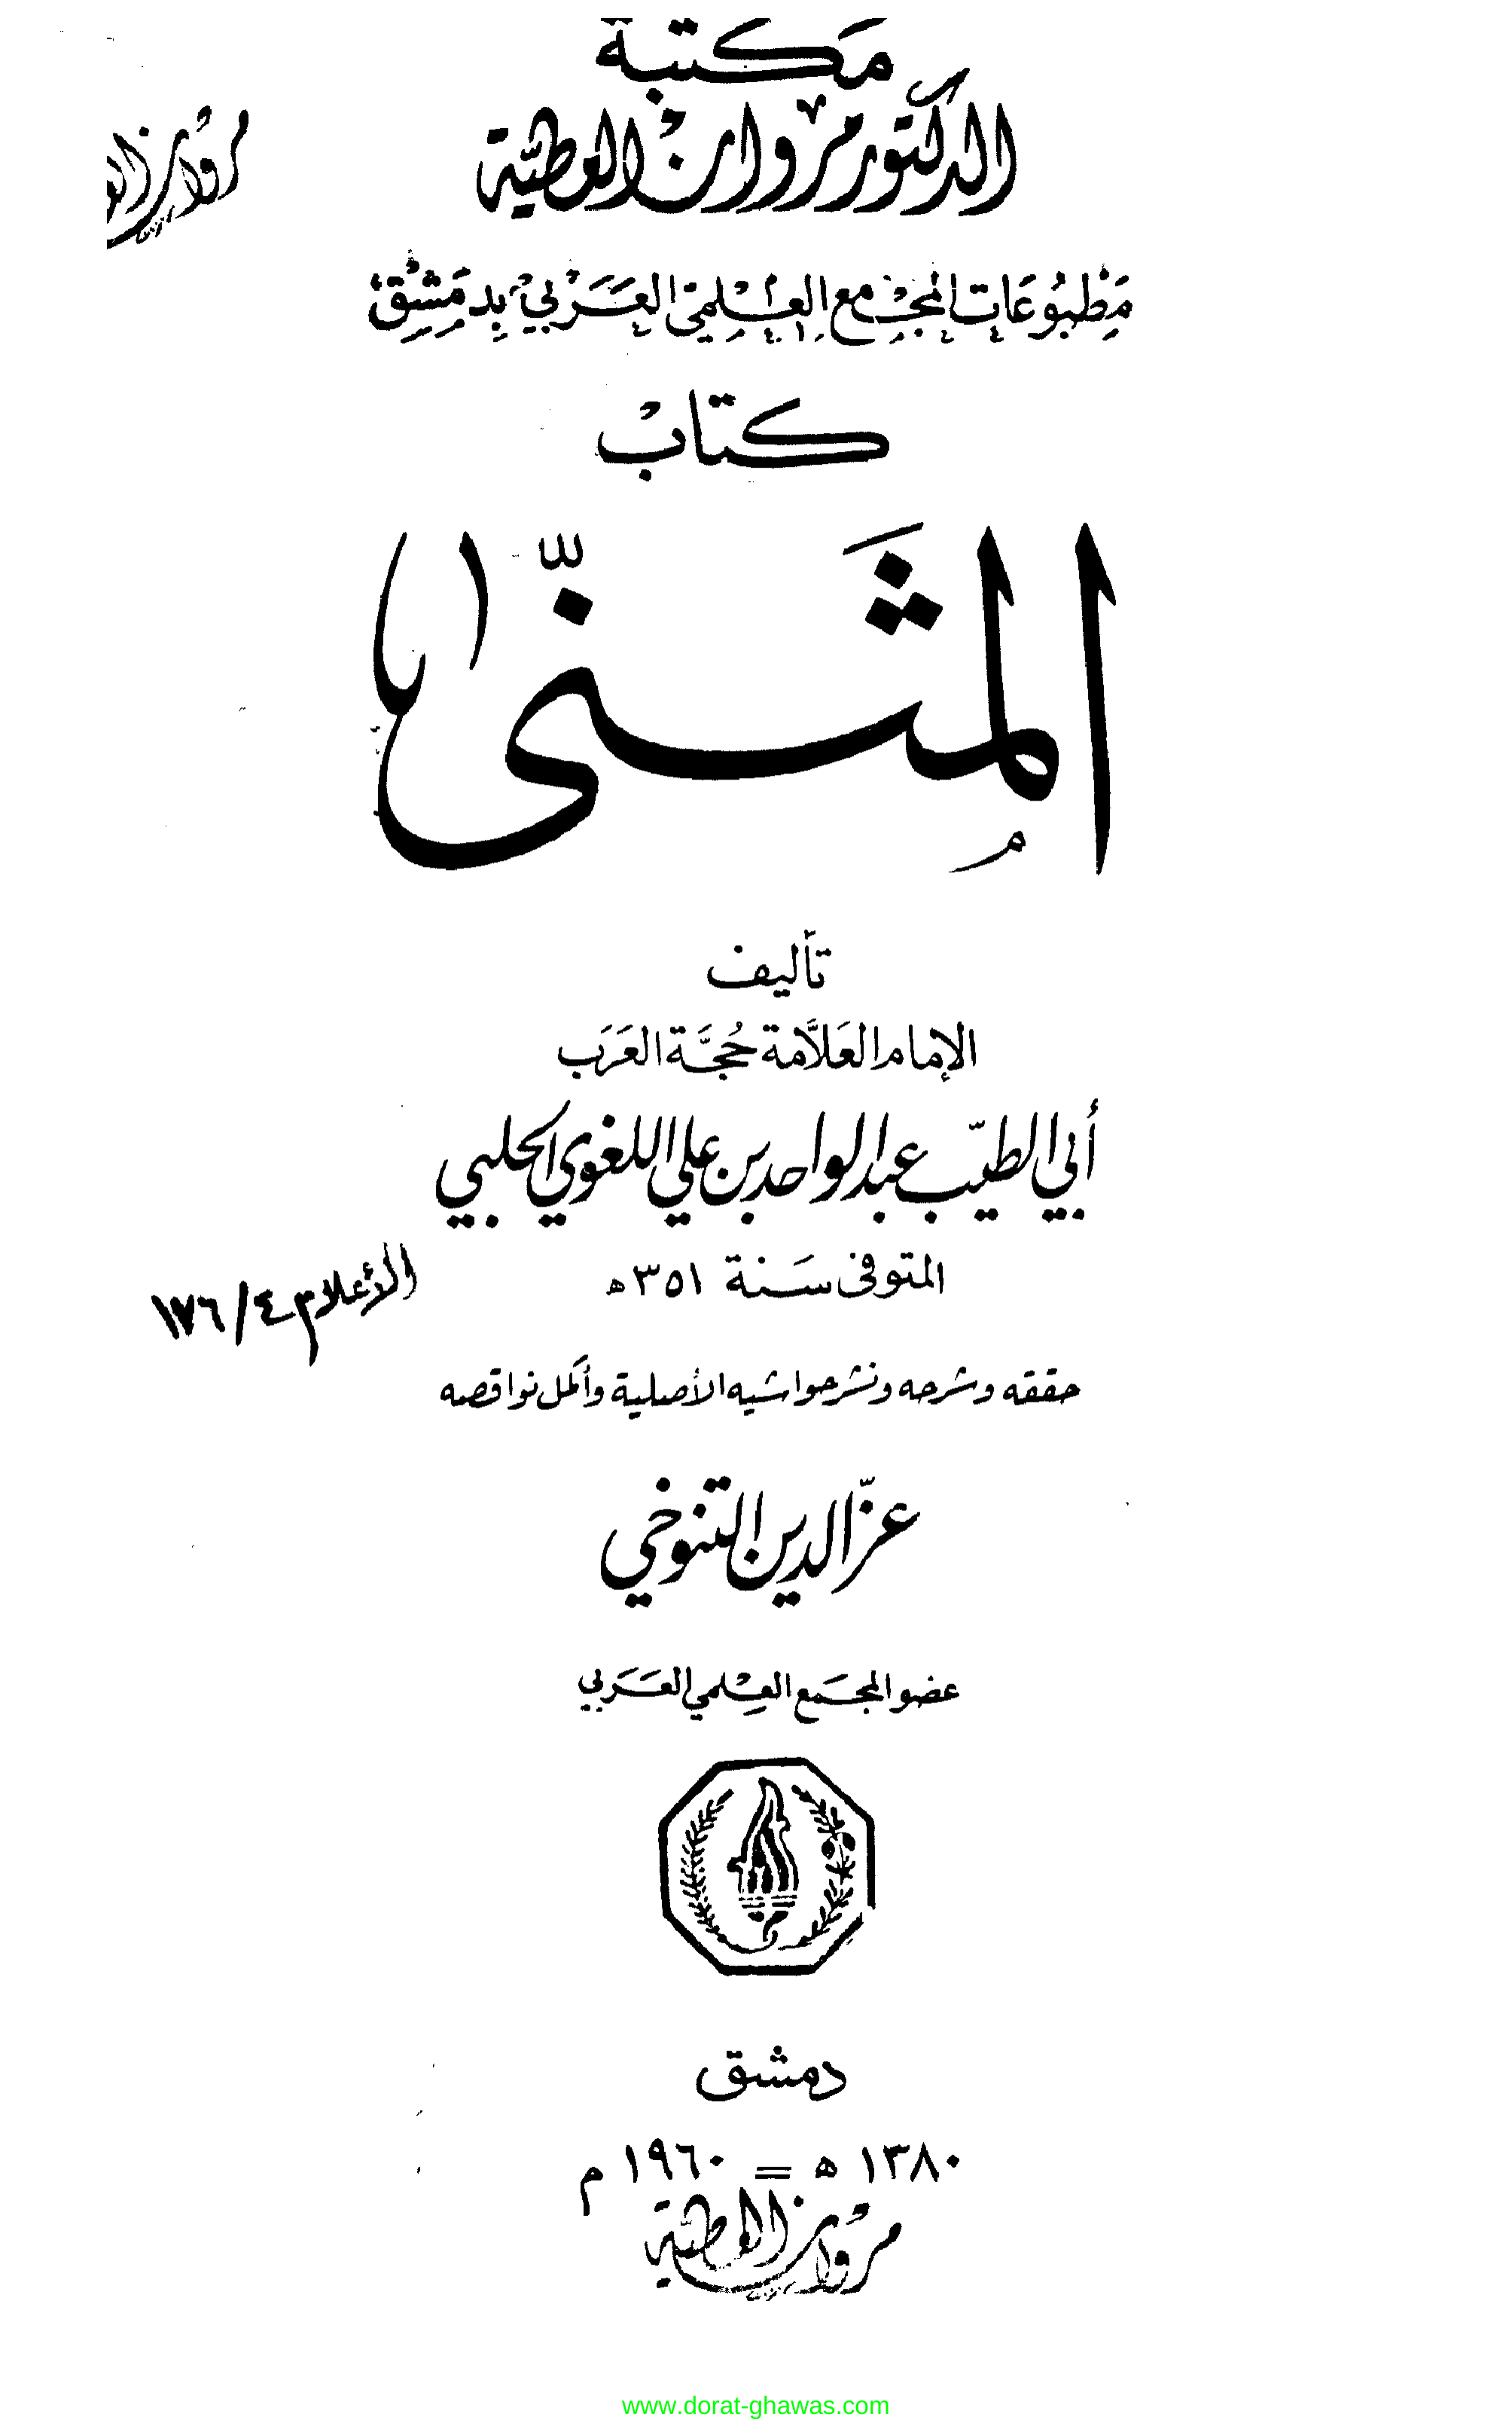 مكتبة
الدكتور مروان العطية
مروان الع
مَطبُوعَات المجْمع العِلمي العَرَبي بِدمَشِق
كتابْ
المثَنّى
تأليف
الإمام العَلاَّمة حُجَّة العَرَب
أبي الطيّب عبد الواحد بن علي اللغوي الحلبي
المتوفى سَنة ٣٥١ ه
الأعلام ٤/١٧٦
حققه وشرحه ونشر حواشيه الأصلية وأكمل نواقصه
عزّ الدين التنوخي
عضو المجمَع العِلمي العَرَبي
دمشق
١٣٨٠ ه = ١٩٦٠ م
مروان العطية
www.dorat-ghawas.com